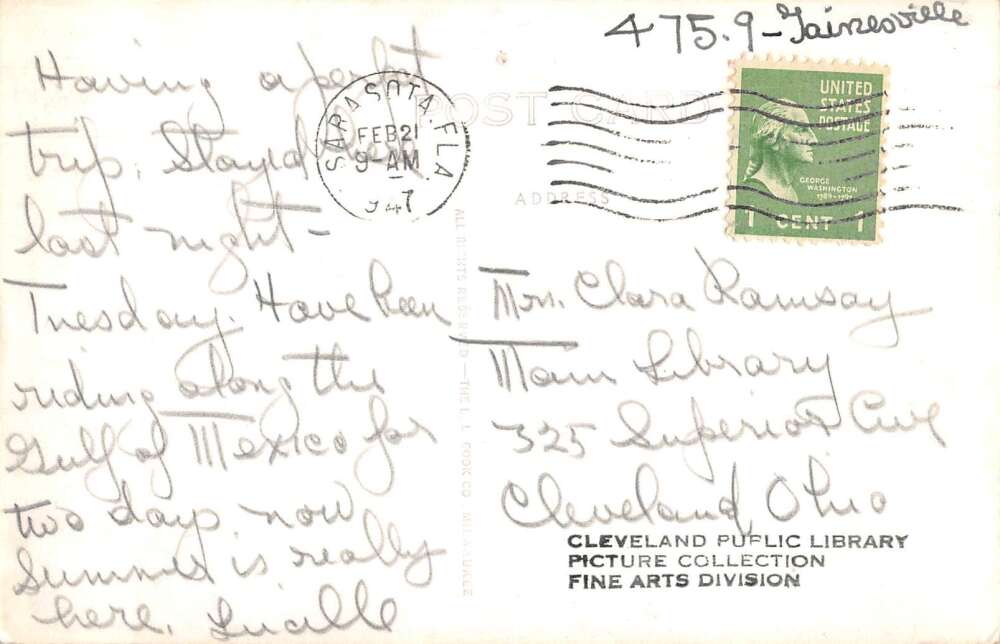 475.9-Gainesville
Having a perfect
trip. Stayed here
last night-
Tuesday. Have been
riding along the
Gulf of Mexico for
two days now
Summer is really
here. Lucille
SARASOTA. FLA.
FEB 21
9-AM
1947
POST CARD
ADDRESS
UNITED
STATES
POSTAGE
GEORGE
WASHINGTON
1789-1797
1 CENT 1
ALL RIGHTS RESERVED-THE L. L. COOK CO. MILWAUKEE
Mrs. Clara Ramsay
Main Library
325 Superior Ave
Cleveland, Ohio
CLEVELAND PUBLIC LIBRARY
PICTURE COLLECTION
FINE ARTS DIVISION